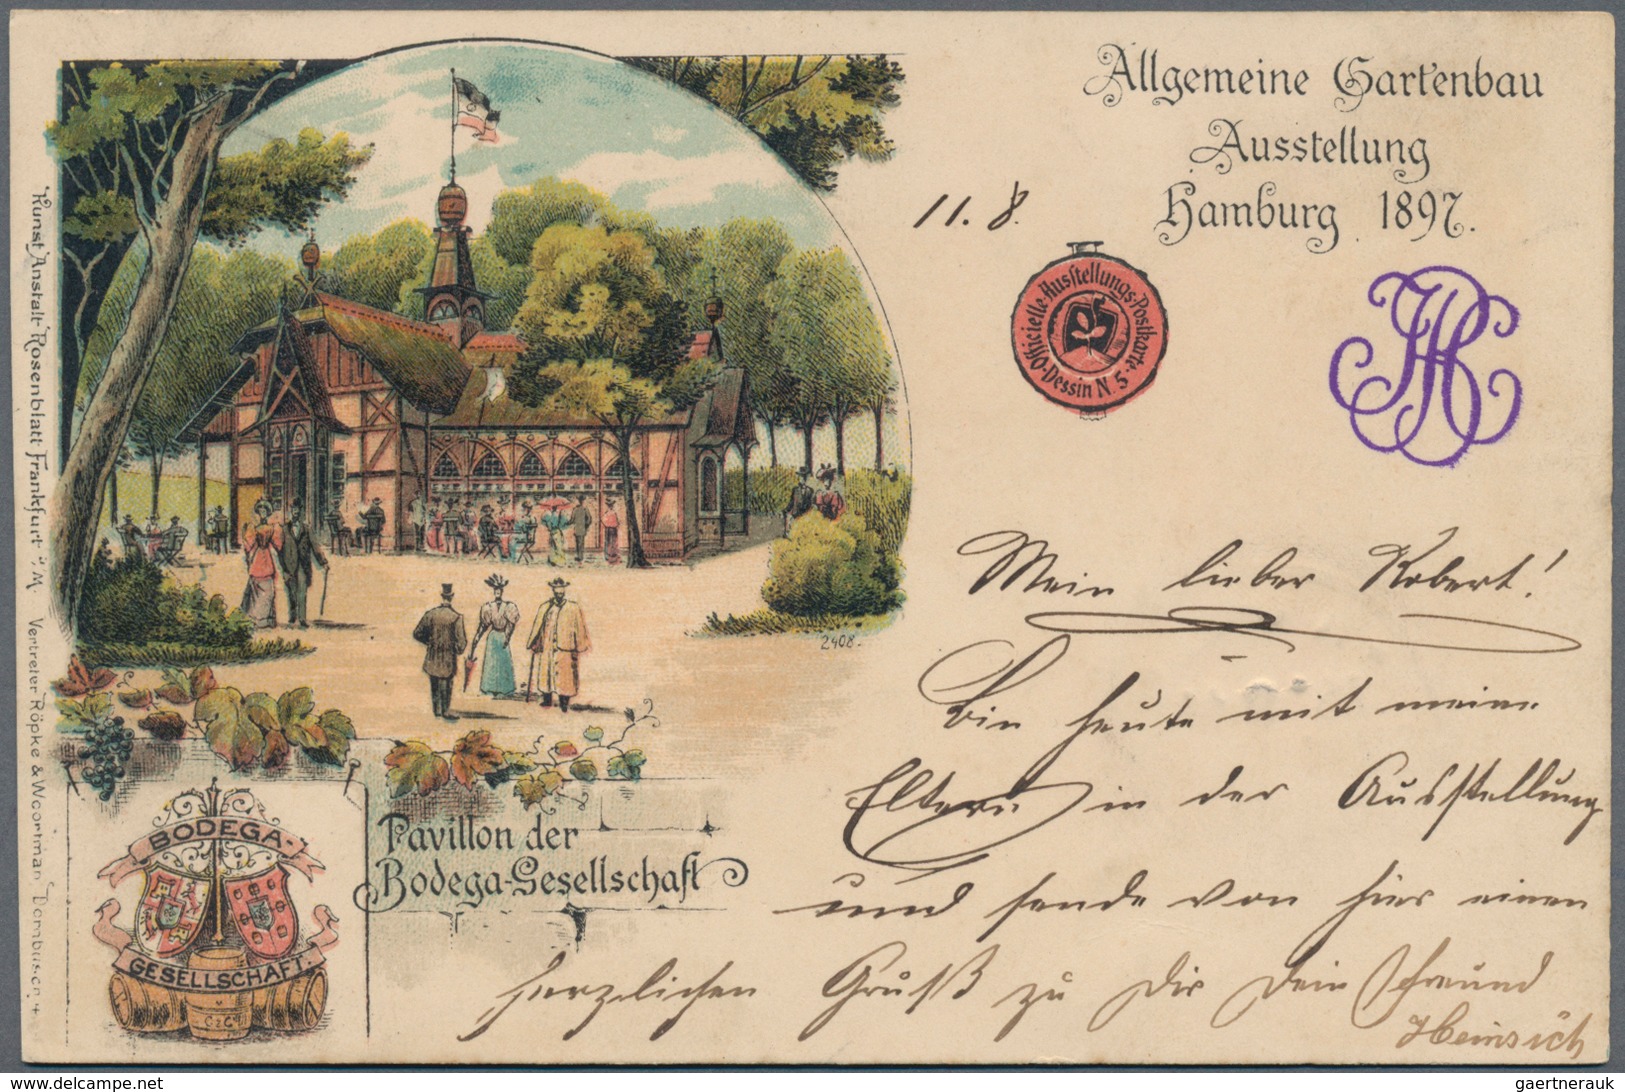 Allgemeine Gartenbau
Ausstellung
Hamburg 1897.
11. 8.
Officielle-Ausstellungs-Postkarte-
Dessin N. 5.
Mein lieber Robert!
Bin heute mit meinen
Eltern in der Ausstellung
und sende von hier einen
herzlichen Gruß zu Dir Dein Freund
Heinrich
2408.
Pavillon der
Bodega-Gesellschaft
BODEGA-
GESELLSCHAFT.
Kunst Anstalt Rosenblatt Frankfurt a/M. Vertreter Röpke & Woortman
gaertnerauk